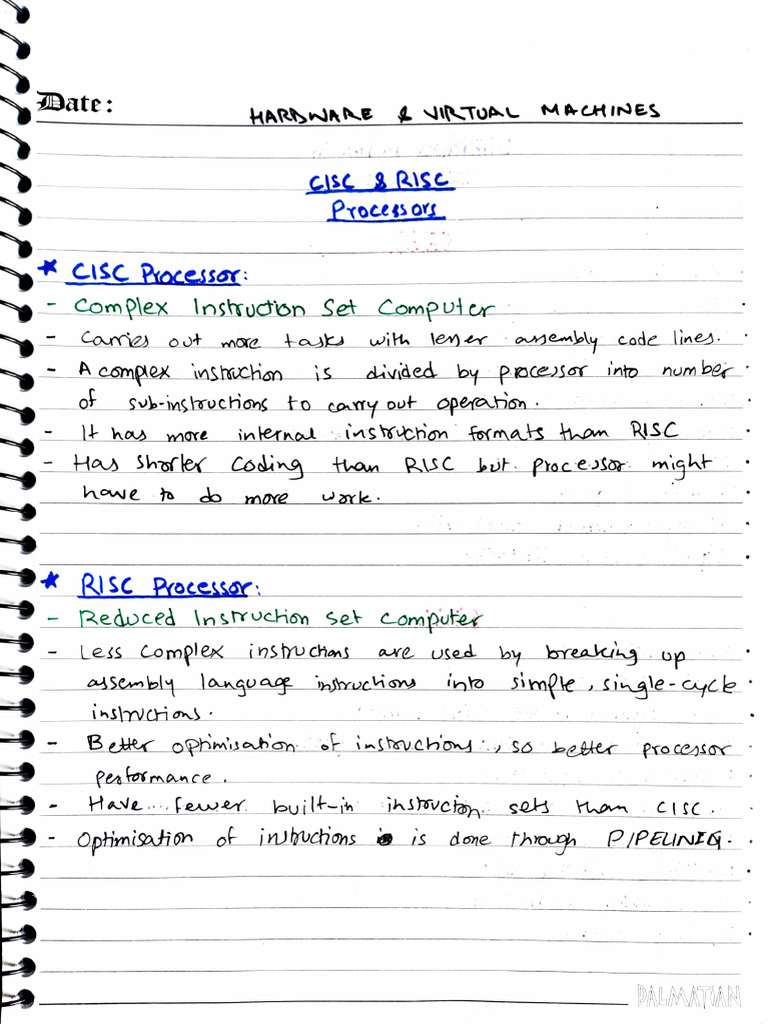 Date:
HARDWARE & VIRTUAL MACHINES
CISC & RISC
Processors
* CISC Processor:
- Complex Instruction Set Computer
- Carries out more tasks with lesser assembly code lines.
- A complex instruction is divided by processor into number
of sub-instructions to carry out operation.
- It has more internal instruction formats than RISC
- Has shorter coding than RISC but processor might
have to do more work.
* RISC Processor:
- Reduced Instruction Set Computer
- Less complex instructions are used by breaking up
assembly language instructions into simple, single-cycle
instructions.
- Better optimisation of instructions, so better processor
performance.
- Have fewer built-in instruction sets than CISC.
- Optimisation of instructions is done through PIPELINIG.
DALMATIAN